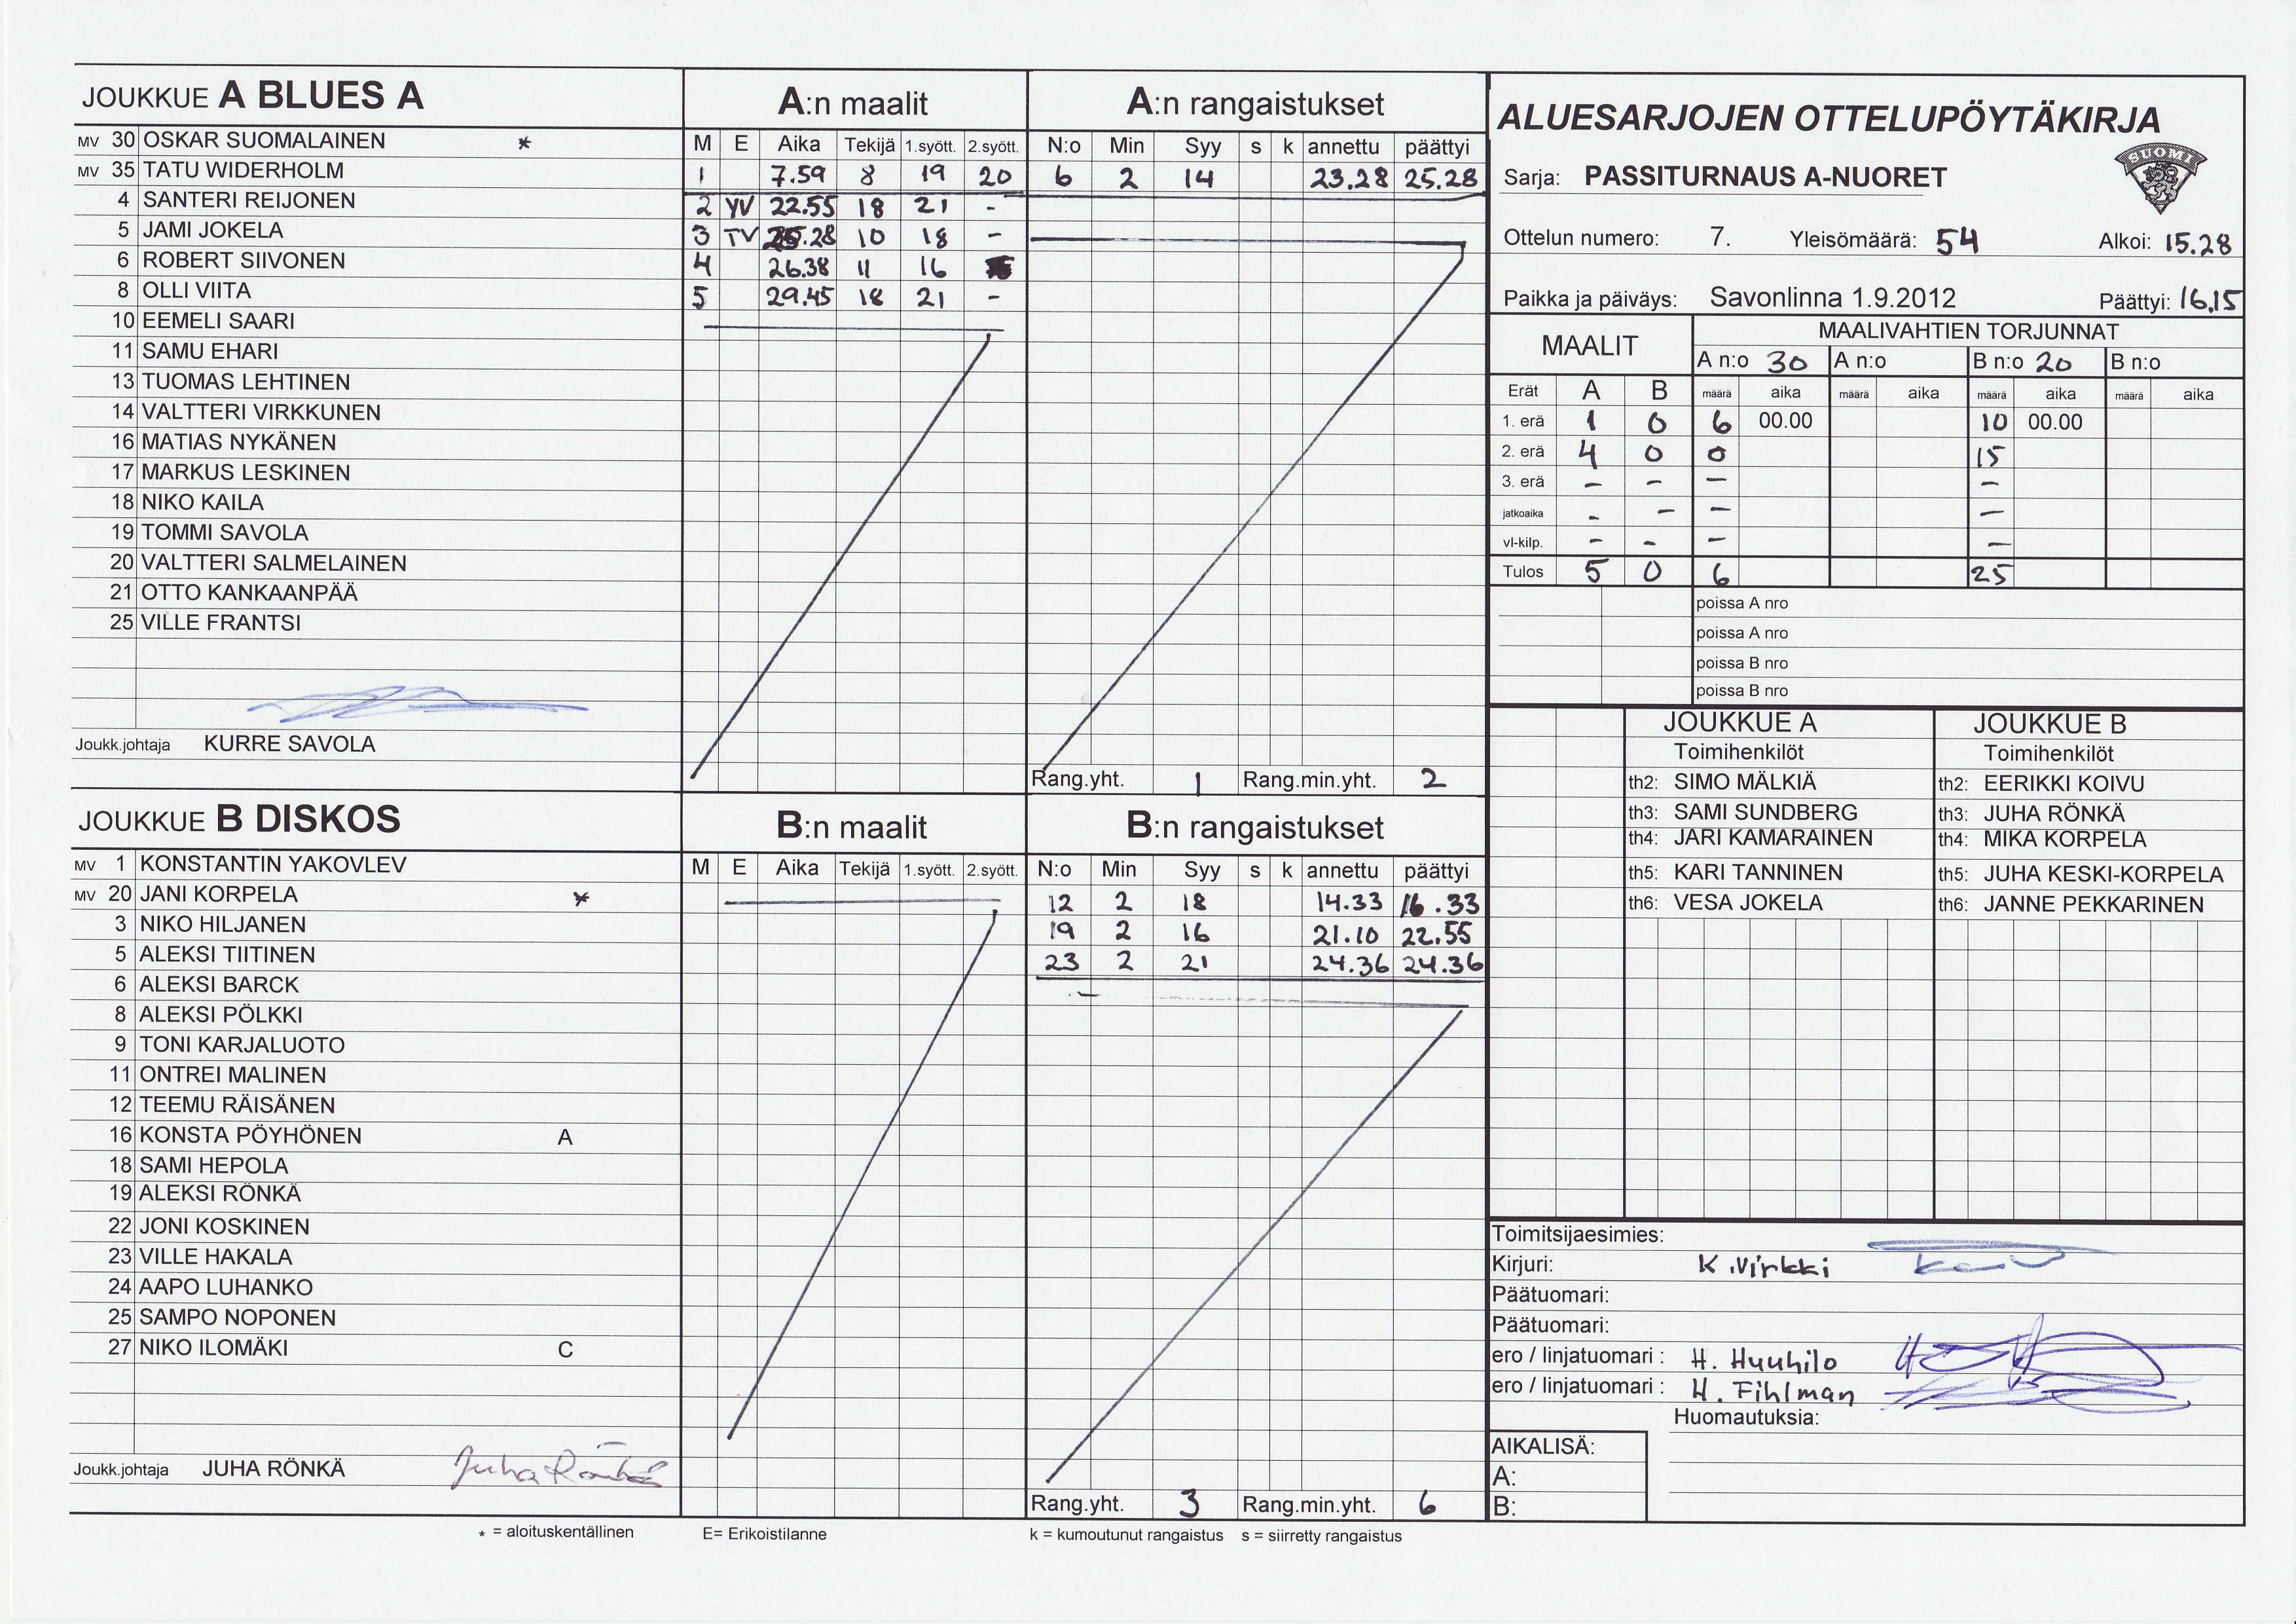 JOUKKUE A BLUES A
MV 30 OSKAR SUOMALAINEN *
MV 35 TATU WIDERHOLM
4 SANTERI REIJONEN
5 JAMI JOKELA
6 ROBERT SIIVONEN
8 OLLI VIITA
10 EEMELI SAARI
11 SAMU EHARI
13 TUOMAS LEHTINEN
14 VALTTERI VIRKKUNEN
16 MATIAS NYKÄNEN
17 MARKUS LESKINEN
18 NIKO KAILA
19 TOMMI SAVOLA
20 VALTTERI SALMELAINEN
21 OTTO KANKAANPÄÄ
25 VILLE FRANTSI
Joukk.johtaja KURRE SAVOLA
A:n maalit
M E Aika Tekijä 1.syött. 2.syött.
1 7.59 8 19 20
2 YV 22.55 18 21 -
3 TV .28 10 18 -
4 26.38 11 16
5 29.45 18 21 -
A:n rangaistukset
N:o Min Syy s k annettu päättyi
6 2 14 23.28 25.28
Rang.yht. 1 Rang.min.yht. 2
JOUKKUE B DISKOS
MV 1 KONSTANTIN YAKOVLEV
MV 20 JANI KORPELA *
3 NIKO HILJANEN
5 ALEKSI TIITINEN
6 ALEKSI BARCK
8 ALEKSI PÖLKKI
9 TONI KARJALUOTO
11 ONTREI MALINEN
12 TEEMU RÄISÄNEN
16 KONSTA PÖYHÖNEN A
18 SAMI HEPOLA
19 ALEKSI RÖNKÄ
22 JONI KOSKINEN
23 VILLE HAKALA
24 AAPO LUHANKO
25 SAMPO NOPONEN
27 NIKO ILOMÄKI C
Joukk.johtaja JUHA RÖNKÄ Juha Rönkä
B:n maalit
M E Aika Tekijä 1.syött. 2.syött.
B:n rangaistukset
N:o Min Syy s k annettu päättyi
12 2 18 14.33 16.33
19 2 16 21.10 22.55
23 2 21 24.36 24.36
Rang.yht. 3 Rang.min.yht. 6
* = aloituskentällinen E= Erikoistilanne k = kumoutunut rangaistus s = siirretty rangaistus
ALUESARJOJEN OTTELUPÖYTÄKIRJA
SUOMI
Sarja: PASSITURNAUS A-NUORET
Ottelun numero: 7. Yleisömäärä: 54 Alkoi: 15.28
Paikka ja päiväys: Savonlinna 1.9.2012 Päättyi: 16.15
MAALIT MAALIVAHTIEN TORJUNNAT
A n:o 30 A n:o B n:o 20 B n:o
Erät A B määrä aika määrä aika määrä aika määrä aika
1. erä 1 0 6 00.00 10 00.00
2. erä 4 0 0 15
3. erä - - - -
jatkoaika - - - -
vl-kilp. - - - -
Tulos 5 0 6 25
poissa A nro
poissa A nro
poissa B nro
poissa B nro
JOUKKUE A JOUKKUE B
Toimihenkilöt Toimihenkilöt
th2: SIMO MÄLKIÄ th2: EERIKKI KOIVU
th3: SAMI SUNDBERG th3: JUHA RÖNKÄ
th4: JARI KAMARAINEN th4: MIKA KORPELA
th5: KARI TANNINEN th5: JUHA KESKI-KORPELA
th6: VESA JOKELA th6: JANNE PEKKARINEN
Toimitsijaesimies:
Kirjuri: K.Virkki
Päätuomari:
Päätuomari:
ero / linjatuomari : H. Huuhilo
ero / linjatuomari : H. Fihlman
Huomautuksia:
AIKALISÄ:
A:
B: